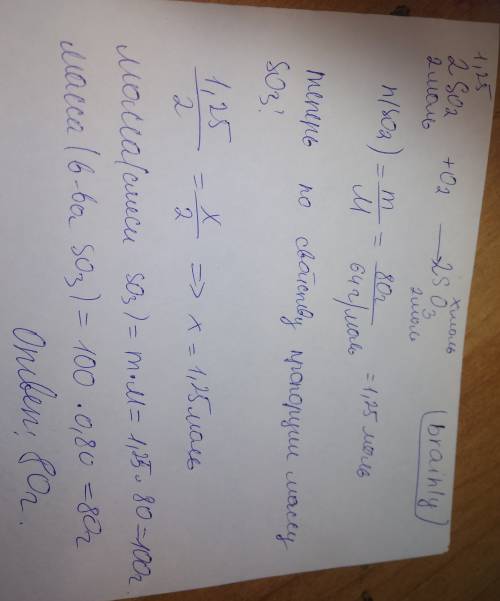 brainly
1,25 x моль
2SO2 + O2 → 2SO3
2моль 2моль
n(SO2) = m/M = 80г/64г/моль = 1,25 моль
теперь по свойству пропорции массу
SO3:
1,25/2 = x/2 => x = 1,25моль
Масса(смеси SO3) = m·M = 1,25·80=100г.
Масса(в-ва SO3) = 100·0,80 = 80г
Ответ: 80г.